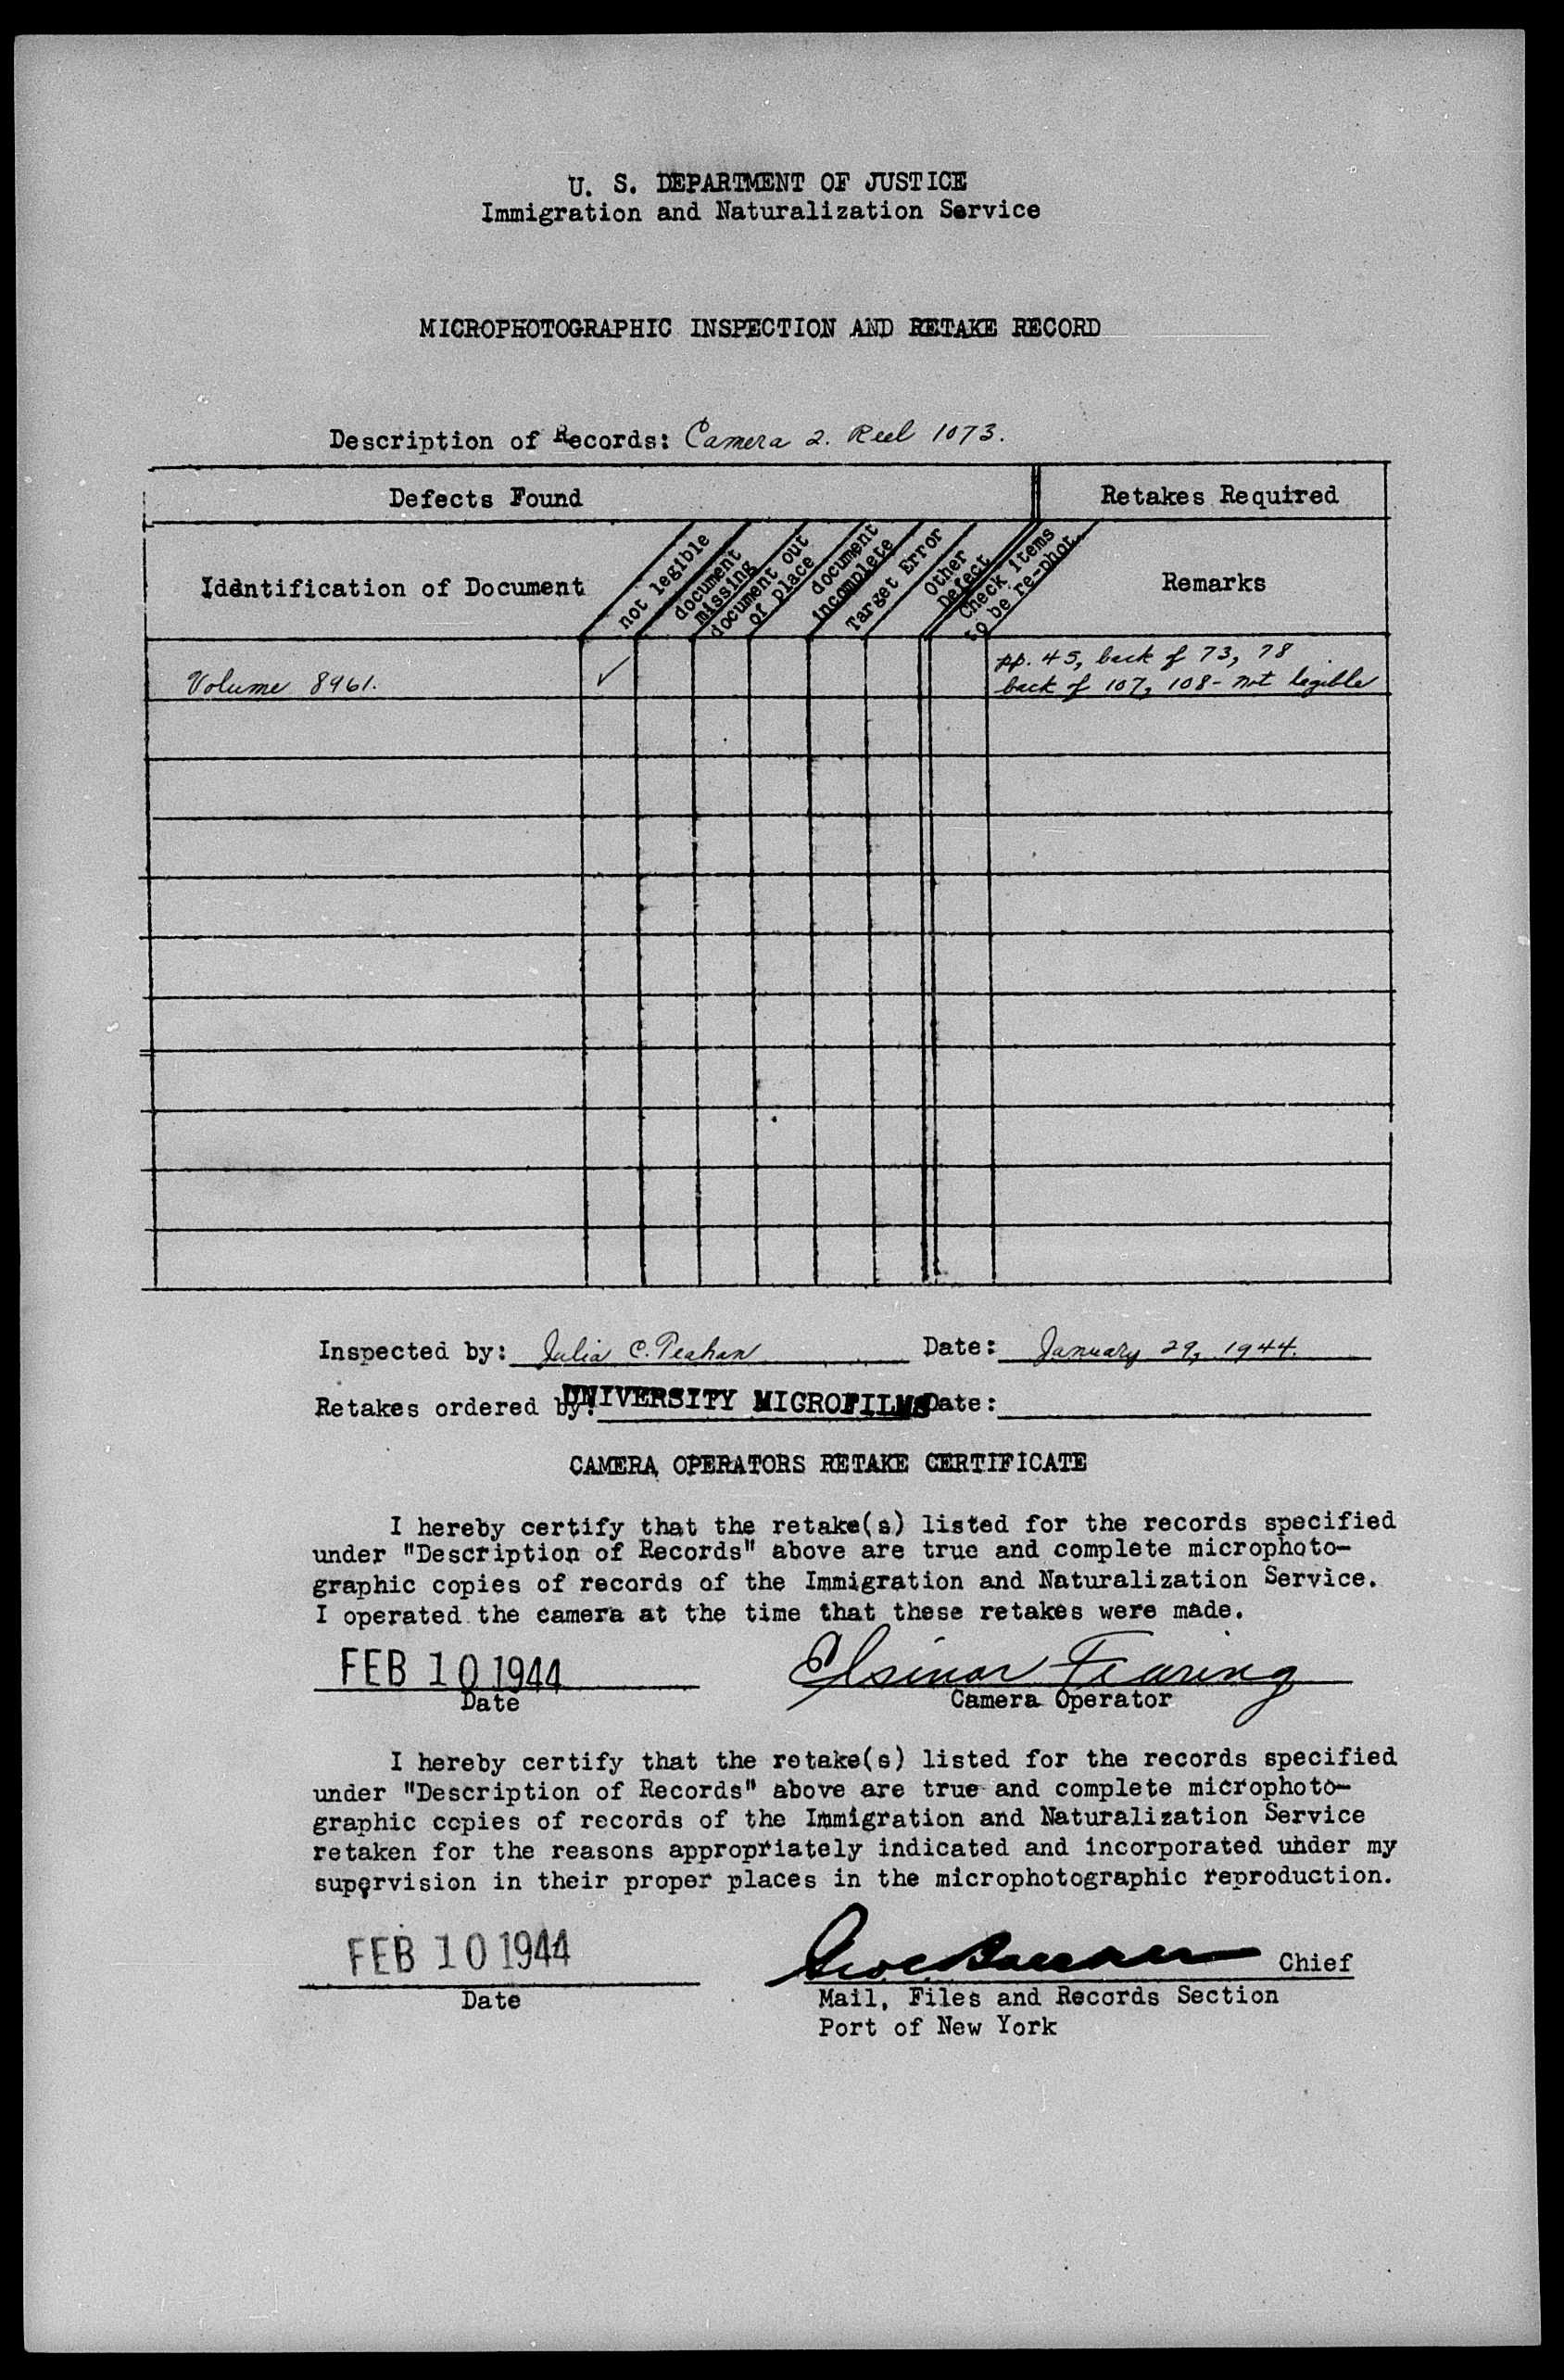 U. S. DEPARTMENT OF JUSTICE
Immigration and Naturalization Service
MICROPHOTOGRAPHIC INSPECTION AND RETAKE RECORD
Description of Records: Camera 2. Reel 1073.
Defects Found
Retakes Required
Identification of Document
not legible
document missing
document out of place
document incomplete
Target Error
Other Defect
Check items to be re-phot.
Remarks
Volume 8961. ✓
pp. 45, back of 73, 78
back of 107, 108 - not legible
Inspected by: Julia C. Date: January 29, 1944.
Retakes ordered by: UNIVERSITY MICROFILMS Date:
CAMERA OPERATORS RETAKE CERTIFICATE
I hereby certify that the retake(s) listed for the records specified
under "Description of Records" above are true and complete microphoto-
graphic copies of records of the Immigration and Naturalization Service.
I operated the camera at the time that these retakes were made.
FEB 10 1944 Elsinor Fearing
Date Camera Operator
I hereby certify that the retake(s) listed for the records specified
under "Description of Records" above are true and complete microphoto-
graphic copies of records of the Immigration and Naturalization Service
retaken for the reasons appropriately indicated and incorporated under my
supervision in their proper places in the microphotographic reproduction.
FEB 10 1944 Chief
Date Mail, Files and Records Section
Port of New York